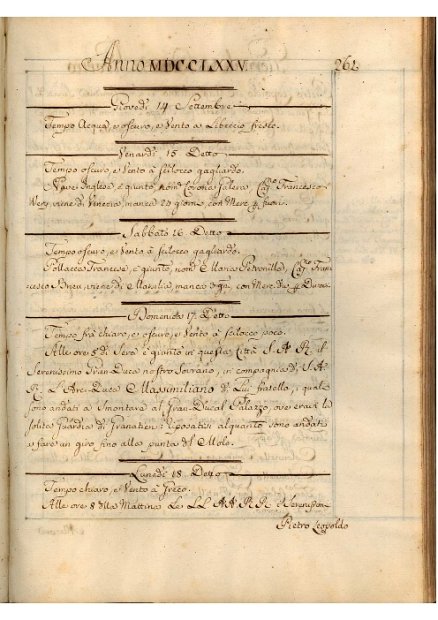 Anno MDCCLXXV. 261
Giovedì 14 Settembre
Tempo Acqua, e oscuro, e Vento a Libeccio fresco.
Venardì 15 Detto
Tempo oscuro, e Vento à scilocco gagliardo.
Nave Inglese, è giunta, nom Corona Galera, Cap.º Francesco
viene di Venezia, manca 20 giorni, con Merc p. fuori.
Sabbato 16. Detto
Tempo oscuro, e Vento à scilocco gagliardo.
Pollacca Francese, è giunta, nom S. Maria Petronilla, Cap.º Fran
cesco viene di Marsilia, manca con Merc. de p.
Domenica 17. Detto
Tempo frà chiaro, e oscuro, e Vento à scilocco poco.
Alle ore 5 di Sera è giunto in questa Città S. A. R. il
Serenissimo Gran-Duca nostro Sovrano, in compagnia di S. A.
R. L'Arci-Duca Massimiliano di Lui fratello, i quali
sono andati à smontare al Gran-Ducal Palazzo, ove era la
solita Guardia di Granatieri: riposatisi alquanto sono andati
a fare un giro fino alla punta del Molo.
Lunedì 18. Detto
Tempo chiaro, e Vento à Greco.
Alle ore 8 della Mattina Le LL. AA. R. R. il Serenissimo
Pietro Leopoldo